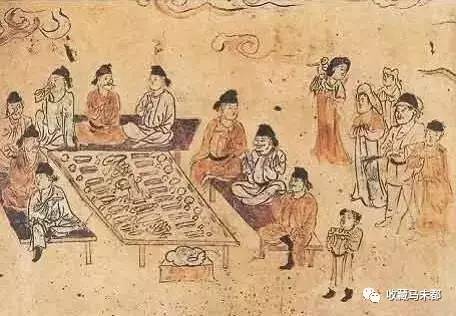 收藏马未都